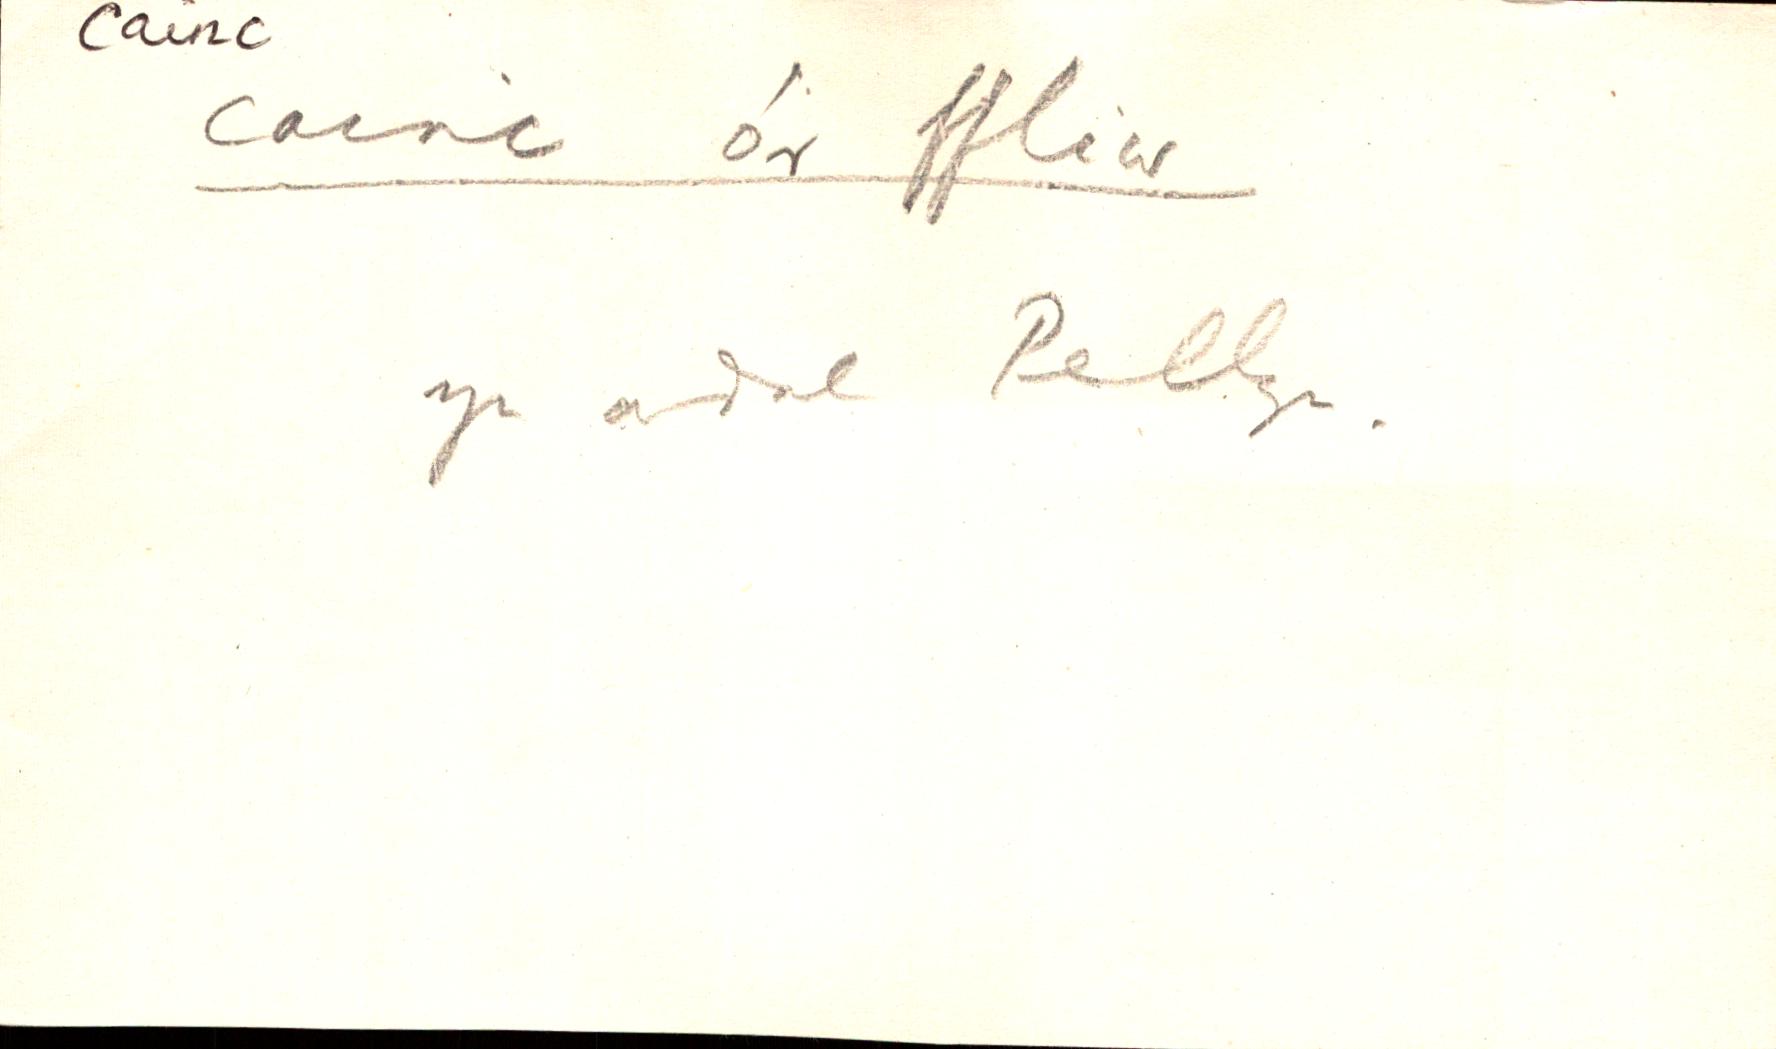 cainc
cainc o'r ffliw
yn ardal Pellyn.